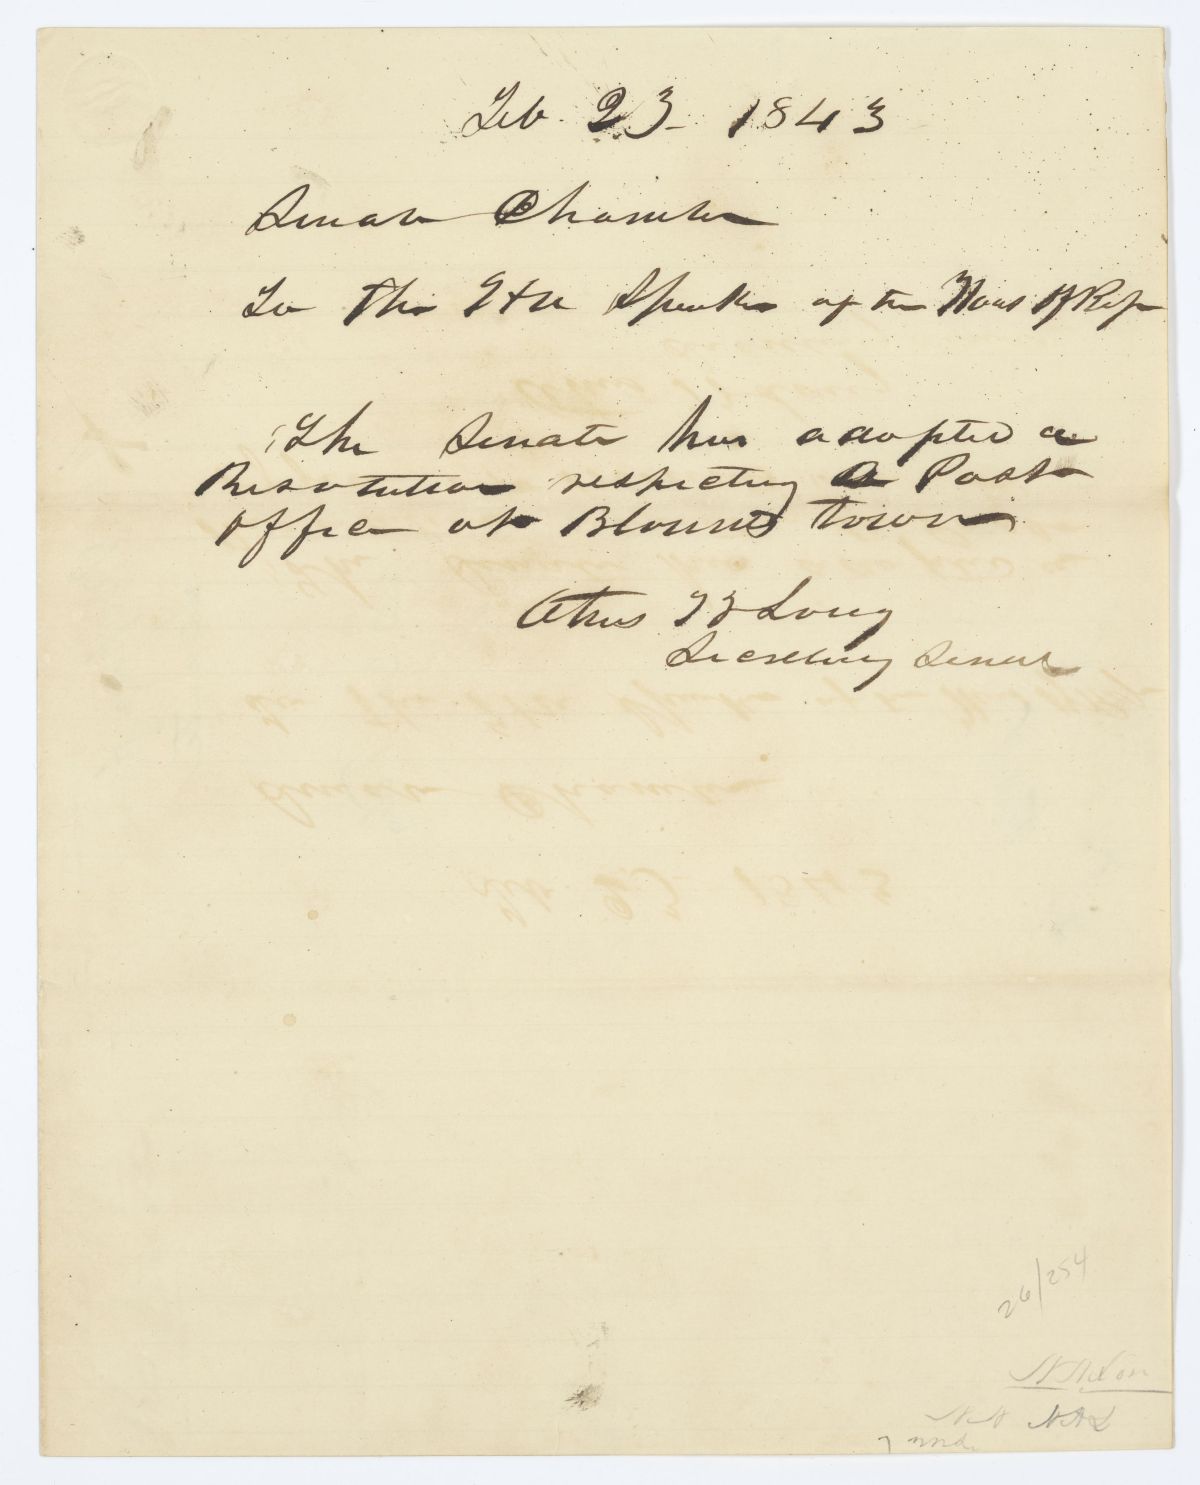 Feb. 23 - 1843
Senate Chamber
To The Hon Speaker of the Hous of Rep
The Senate has adopted a
Resolution respecting a Post
Office at Blounts town
Thos T Long
Secretary Senate
26/254